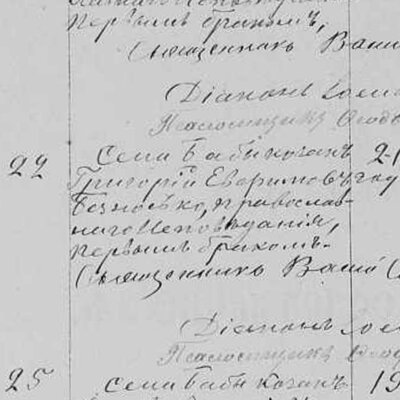 первымъ бракомъ,
Священникъ Васи
Діаконъ
Псаломщикъ Ѳеод
22 Села Бабы козакъ 24
Григорій Евфимовъ
Безносько, православ-
наго исповѣданія,
первымъ бракомъ.
Священникъ Васи
Діаконъ
Псаломщикъ Ѳеод
25 Села Бабы козакъ 19